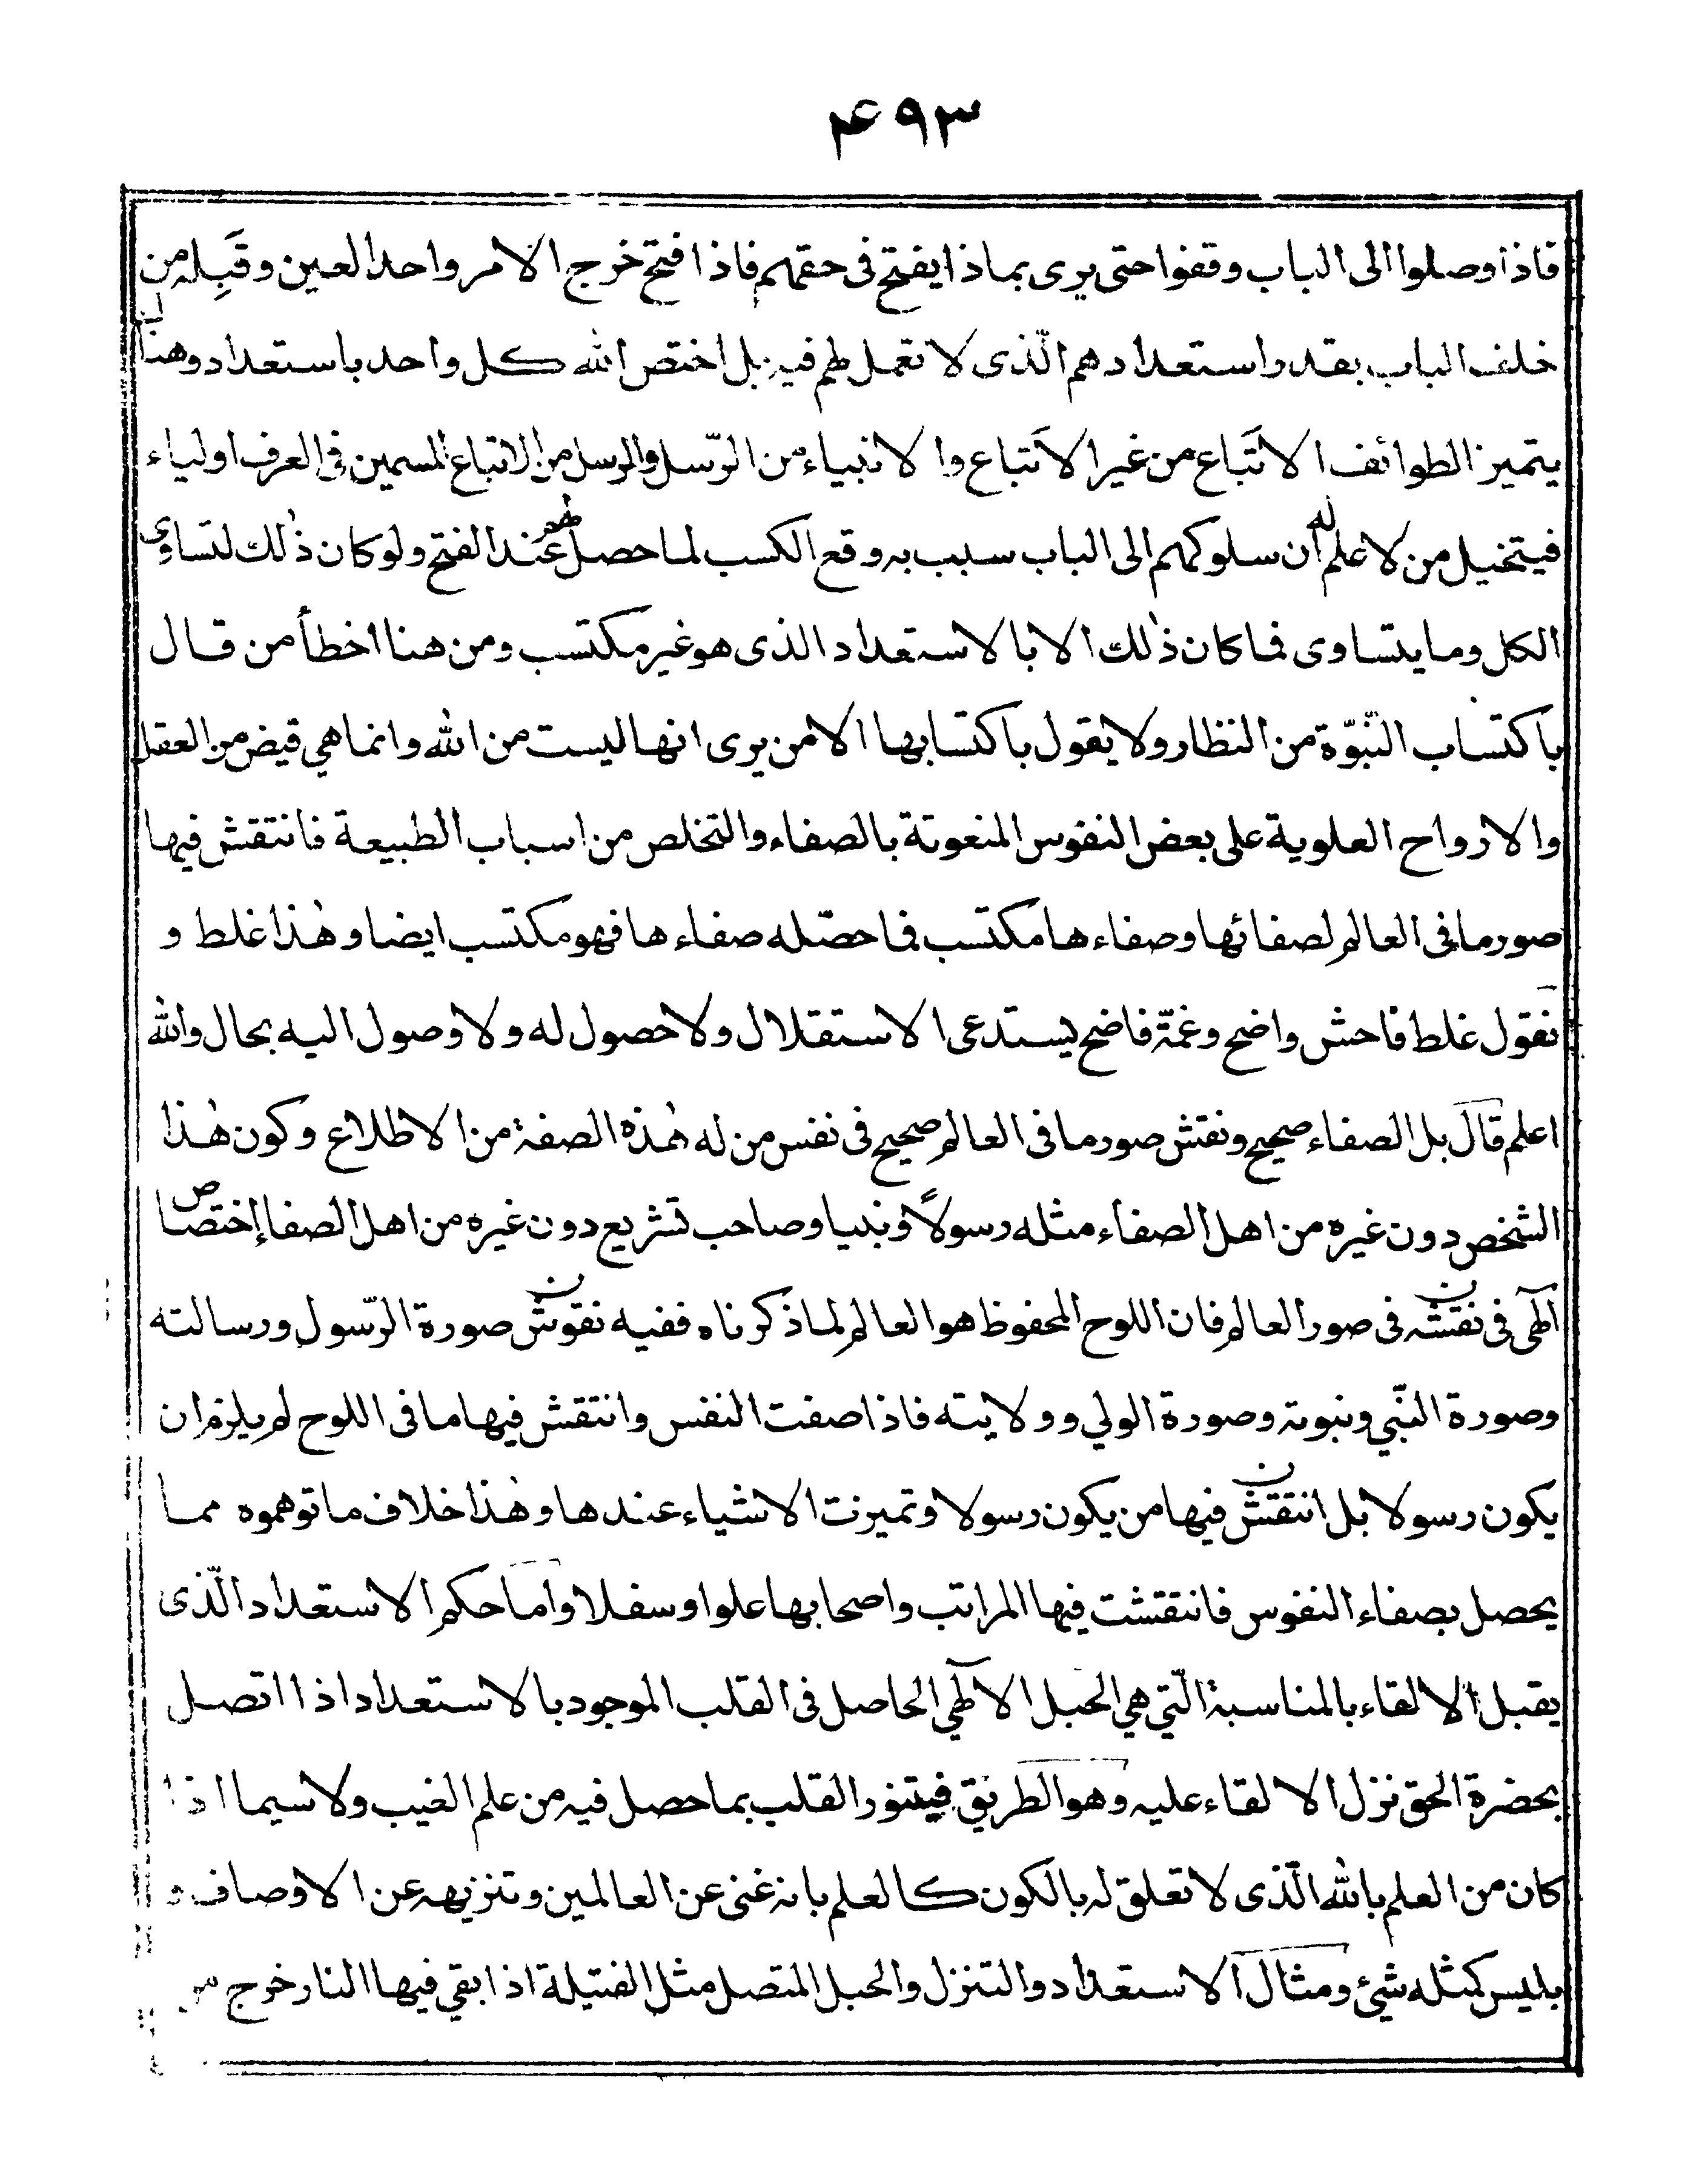 ۴۹۳
فاذا وصلوا الى الباب وقفوا حتى يرى بماذا يفتح فى حقهم فاذا فتح خرج الامر واحد العين وقَبِله من
خلف الباب بقدر استعدادهم الّذى لا تعمل لهم فيه بل اختص الله كل واحد باستعداد وهنالك
يتميز الطوائف الاتَباع من غير الاَتباع والانبياء من الرّسل والرسل من الاتباع المسمين فى العرف اولياء
فيتخيل من لا علم له أن سلوكهم الى الباب سبب به وقع الكسب لما حصل لهم عند الفتح ولو كان ذٰلك لتساوى
الكل وما يتساوى فما كان ذٰلك الا بالاستعداد الذى هو غير مكتسب ومن هنا اخطأ من قال
باكتساب النّبوّة من النظار ولا يقول باكتسابها الا من يرى انها ليست من الله وانما هي فيض من العقل
والارواح العلوية على بعض النفوس المنعوتة بالصفاء والتخلص من اسباب الطبيعة فانتقش فيها
صور ما فى العالم لصفائها وصفاءها مكتسب فما حصّله صفاءها فهو مكتسب ايضا وهٰذا غلط و
نقول غلط فاحش واضح وغمّة فاضح يستدعى الاستقلال ولا حصول له ولا وصول اليه بحال والله
اعلم قال بل الصفاء صحيح ونقش صور ما فى العالم صحيح فى نفس من له هٰذه الصفة من الاطلاع وكون هٰذا
الشخص دون غيره من اهل الصفاء مثله رسولاً ونبيا وصاحب تشريع دون غيره من اهل الصفا إختصاص
الٓهى فى نقشه فى صور العالم فان اللوح المحفوظ هو العالم لما ذكرناه ففيه نقوش صورة الرّسول ورسالته
وصورة النّبي ونبوته وصورة الولي وولايته فاذا صفت النفس وانتقش فيها ما فى اللوح لم يلزم ان
يكون رسولا بل انتقش فيها من يكون رسولا وتميزت الاشياء عندها وهٰذا خلاف ما توهموه مما
يحصل بصفاء النفوس فانتقشت فيها المراتب واصحابها علوا وسفلا واما حكم الاستعداد الّذى
يقبل الالقاء بالمناسبة الّتي هي الحبل الالٓهي الحاصل فى القلب الموجود بالاستعداد اذا اتصل
بحضرة الحق نزل الالقاء عليه وهو الطريق فيتنور القلب بما حصل فيه من علم الغيب ولا سيما اذا
كان من العلم بالله الّذى لا تعلق له بالكون كالعلم بانه غنى عن العالمين وتنزيهه عن الاوصاف و
بليس كمثله شيئ ومثال الاستعداد والتنزل والحبل المتصل مثل الفتيلة اذا بقي فيها النار خرج من